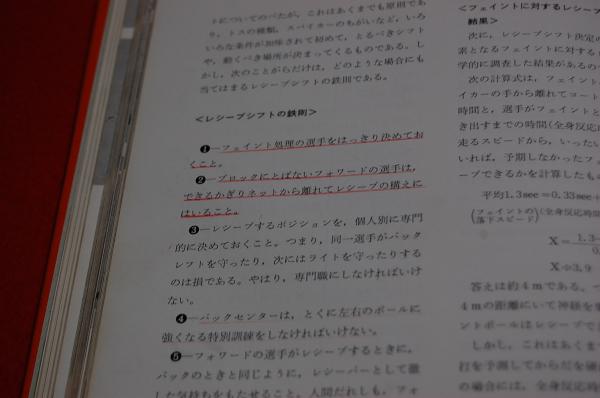 トについてのべたが，これはあくまでも原則であ
り，トスの種類，スパイカーのちがいなど，いろ
いろな条件が加味されて初めて，とるべきシフト
や，動くべき場所が決まってくるものである。し
かし，次のことがらだけは，どのような場合にも
当てはまるレシーブシフトの鉄則である。
＜レシーブシフトの鉄則＞
❶―フェイント処理の選手をはっきり決めてお
くこと。
❷―ブロックにとばないフォワードの選手は，
できるかぎりネットから離れてレシーブの構えに
はいること。
❸―レシーブするポジションを，個人別に専門
的に決めておくこと。つまり，同一選手がバック
レフトを守ったり，次にはライトを守ったりする
のは損である。やはり，専門職にしなければいけ
ない。
❹―バックセンターは，とくに左右のボールに
強くなる特別訓練をしなければいけない。
❺―フォワードの選手がレシーブするときに，
バックのときと同じように，レシーバーとして徹
した気持ちをもたせること。人間だれしも，フォ
＜フェイントに対するレシーブ
結果＞
次に，レシーブシフト決定の
素となるフェイントに対する
学的に調査した結果があるの
次の計算式は，フェイント
イカーの手から離れてコート
時間と，選手がフェイントと
き出すまでの時間（全身反応時
走るスピードから，いったい
いれば，予期しなかったフ
ーブできるかを計算したもの
平均1.3sec＝0.33sec＋
（フェイントの落下スピード）（全身反応時間
X＝1.3－
X≑3.9
答えは約４ｍである。つ
４ｍの距離にいて神経を
ントボールはレシーブで
しかし，これはあくま
打を予測してからだを
の場合には，全身反応時